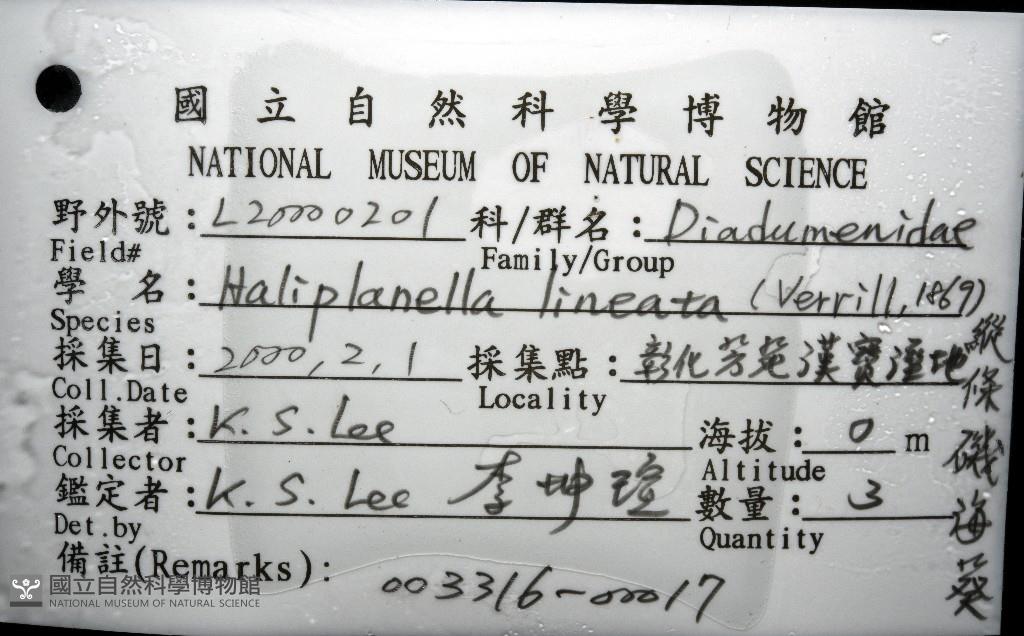 國立自然科學博物館
NATIONAL MUSEUM OF NATURAL SCIENCE
野外號：L20000201 科/群名：Diadumenidae
Field# Family/Group
學 名：Haliplanella lineata (Verrill, 1869)
Species
採集日：2000, 2, 1 採集點：彰化芳苑漢寶溼地
Coll.Date Locality
採集者：K. S. Lee 海拔：0 m
Collector Altitude
鑑定者：K. S. Lee 李坤瑄 數量：3
Det.by Quantity
備註(Remarks)：003316-00017
縱條磯海葵
國立自然科學博物館
NATIONAL MUSEUM OF NATURAL SCIENCE